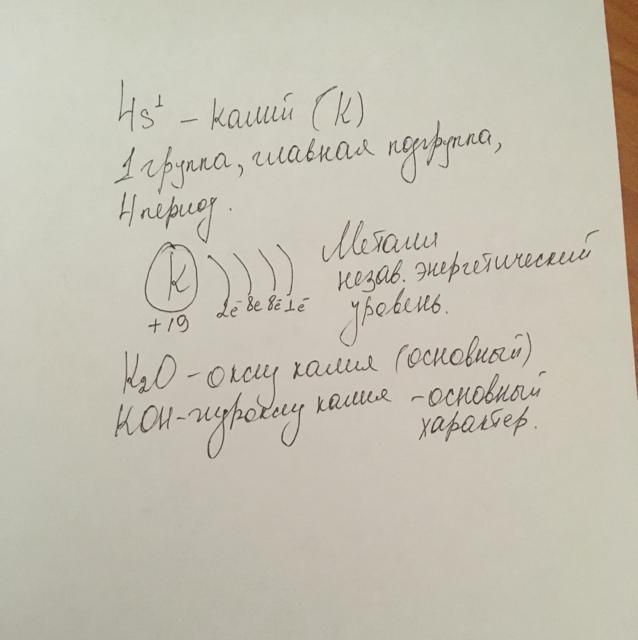 4s¹ – калий (К)
1 группа, главная подгруппа,
4 период.
К
+19
2ē 8е 8ē 1ē
Металл
незав. энергетический
уровень.
K₂O – оксид калия (основный)
KOH – гидроксид калия – основный
характер.